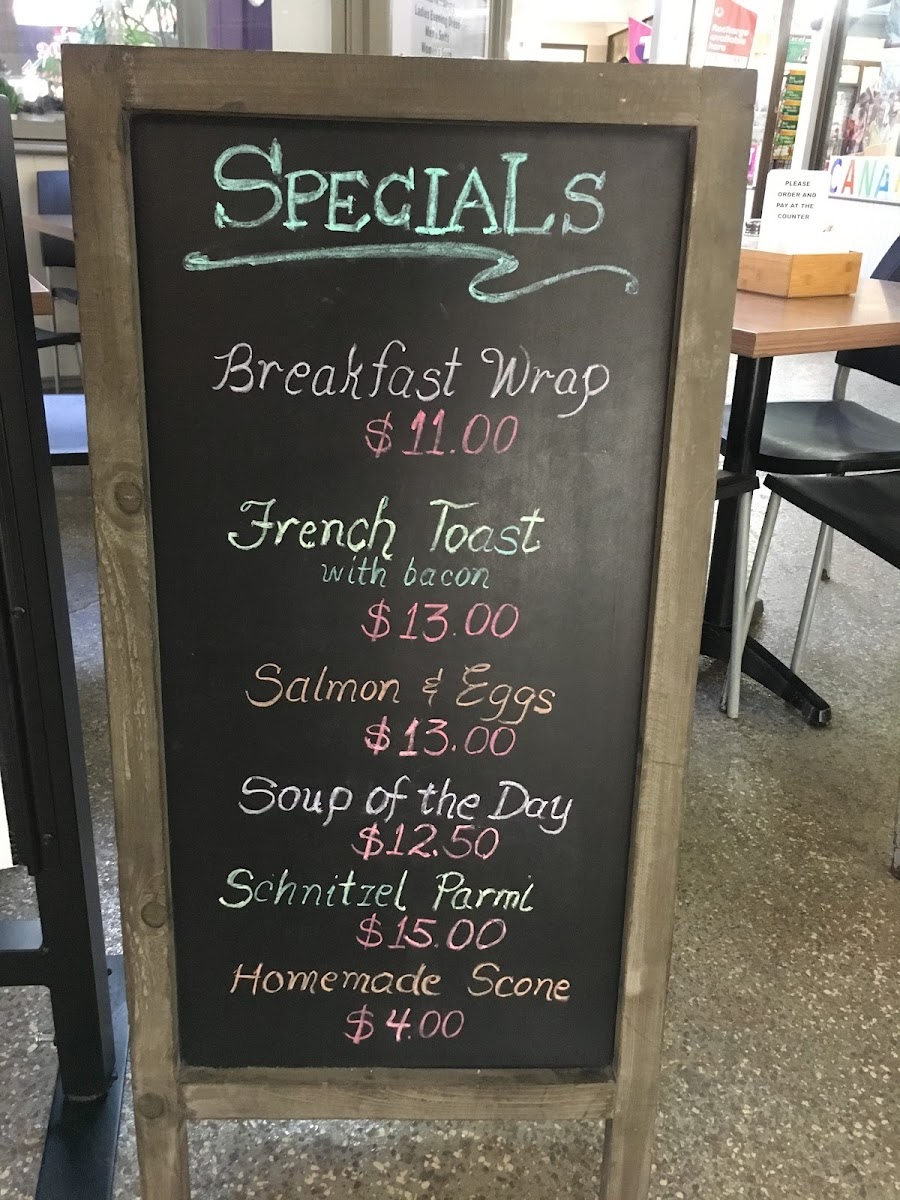 SPECIALS
Breakfast Wrap
$11.00
French Toast
with bacon
$13.00
Salmon & Eggs
$13.00
Soup of the Day
$12.50
Schnitzel Parmi
$15.00
Homemade Scone
$4.00
PLEASE
ORDER AND
PAY AT THE
COUNTER